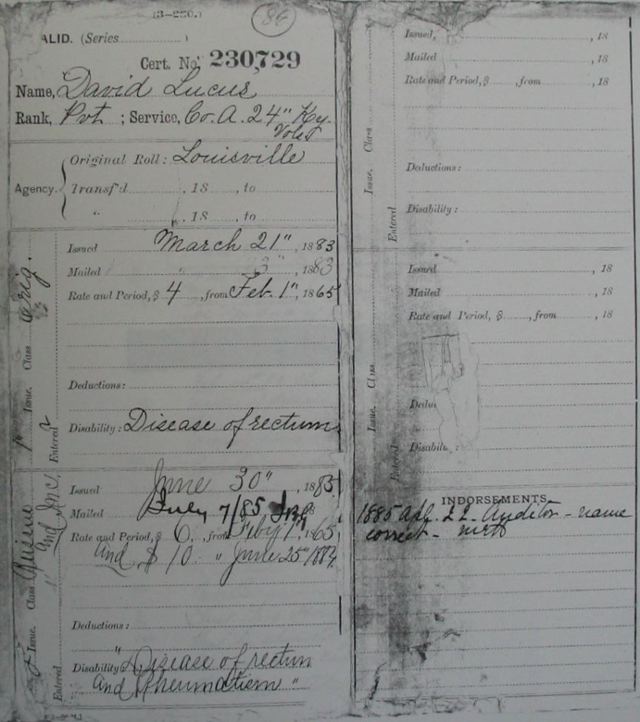 (3-230.)
86
ALID. (Series )
Cert. No. 230,729
Name, David Lucus
Rank, Pvt ; Service, Co. A. 24" Ky.
Vols
Original Roll: Louisville
Agency. Transf'd , 18 , to
" , 18 , to
Class Orig.
Issue.
Entered
Issued March 21", 1883
Mailed " , 1883
Rate and Period, $ 4 , from Feb. 1", 1865
Deductions:
Disability: Disease of rectum
Class
and Inc,
Issue.
Entered
Issued June 30" 1885
Mailed July 7/85
Rate and Period, $ 6, from Feby 1", 65
and $ 10 " June 25" 1884
Deductions:
Disability: "Disease of rectum
and Rheumatism"
Issued, , 18
Mailed , 18
Rate and Period, $ , from , 18
Class
Issue,
Entered
Deductions:
Disability:
Issued , 18
Mailed , 18
Rate and Period, $ , from , 18
Class
Issue,
Entered
INDORSEMENTS
1885 Apl. 22. Auditor - name
correct -